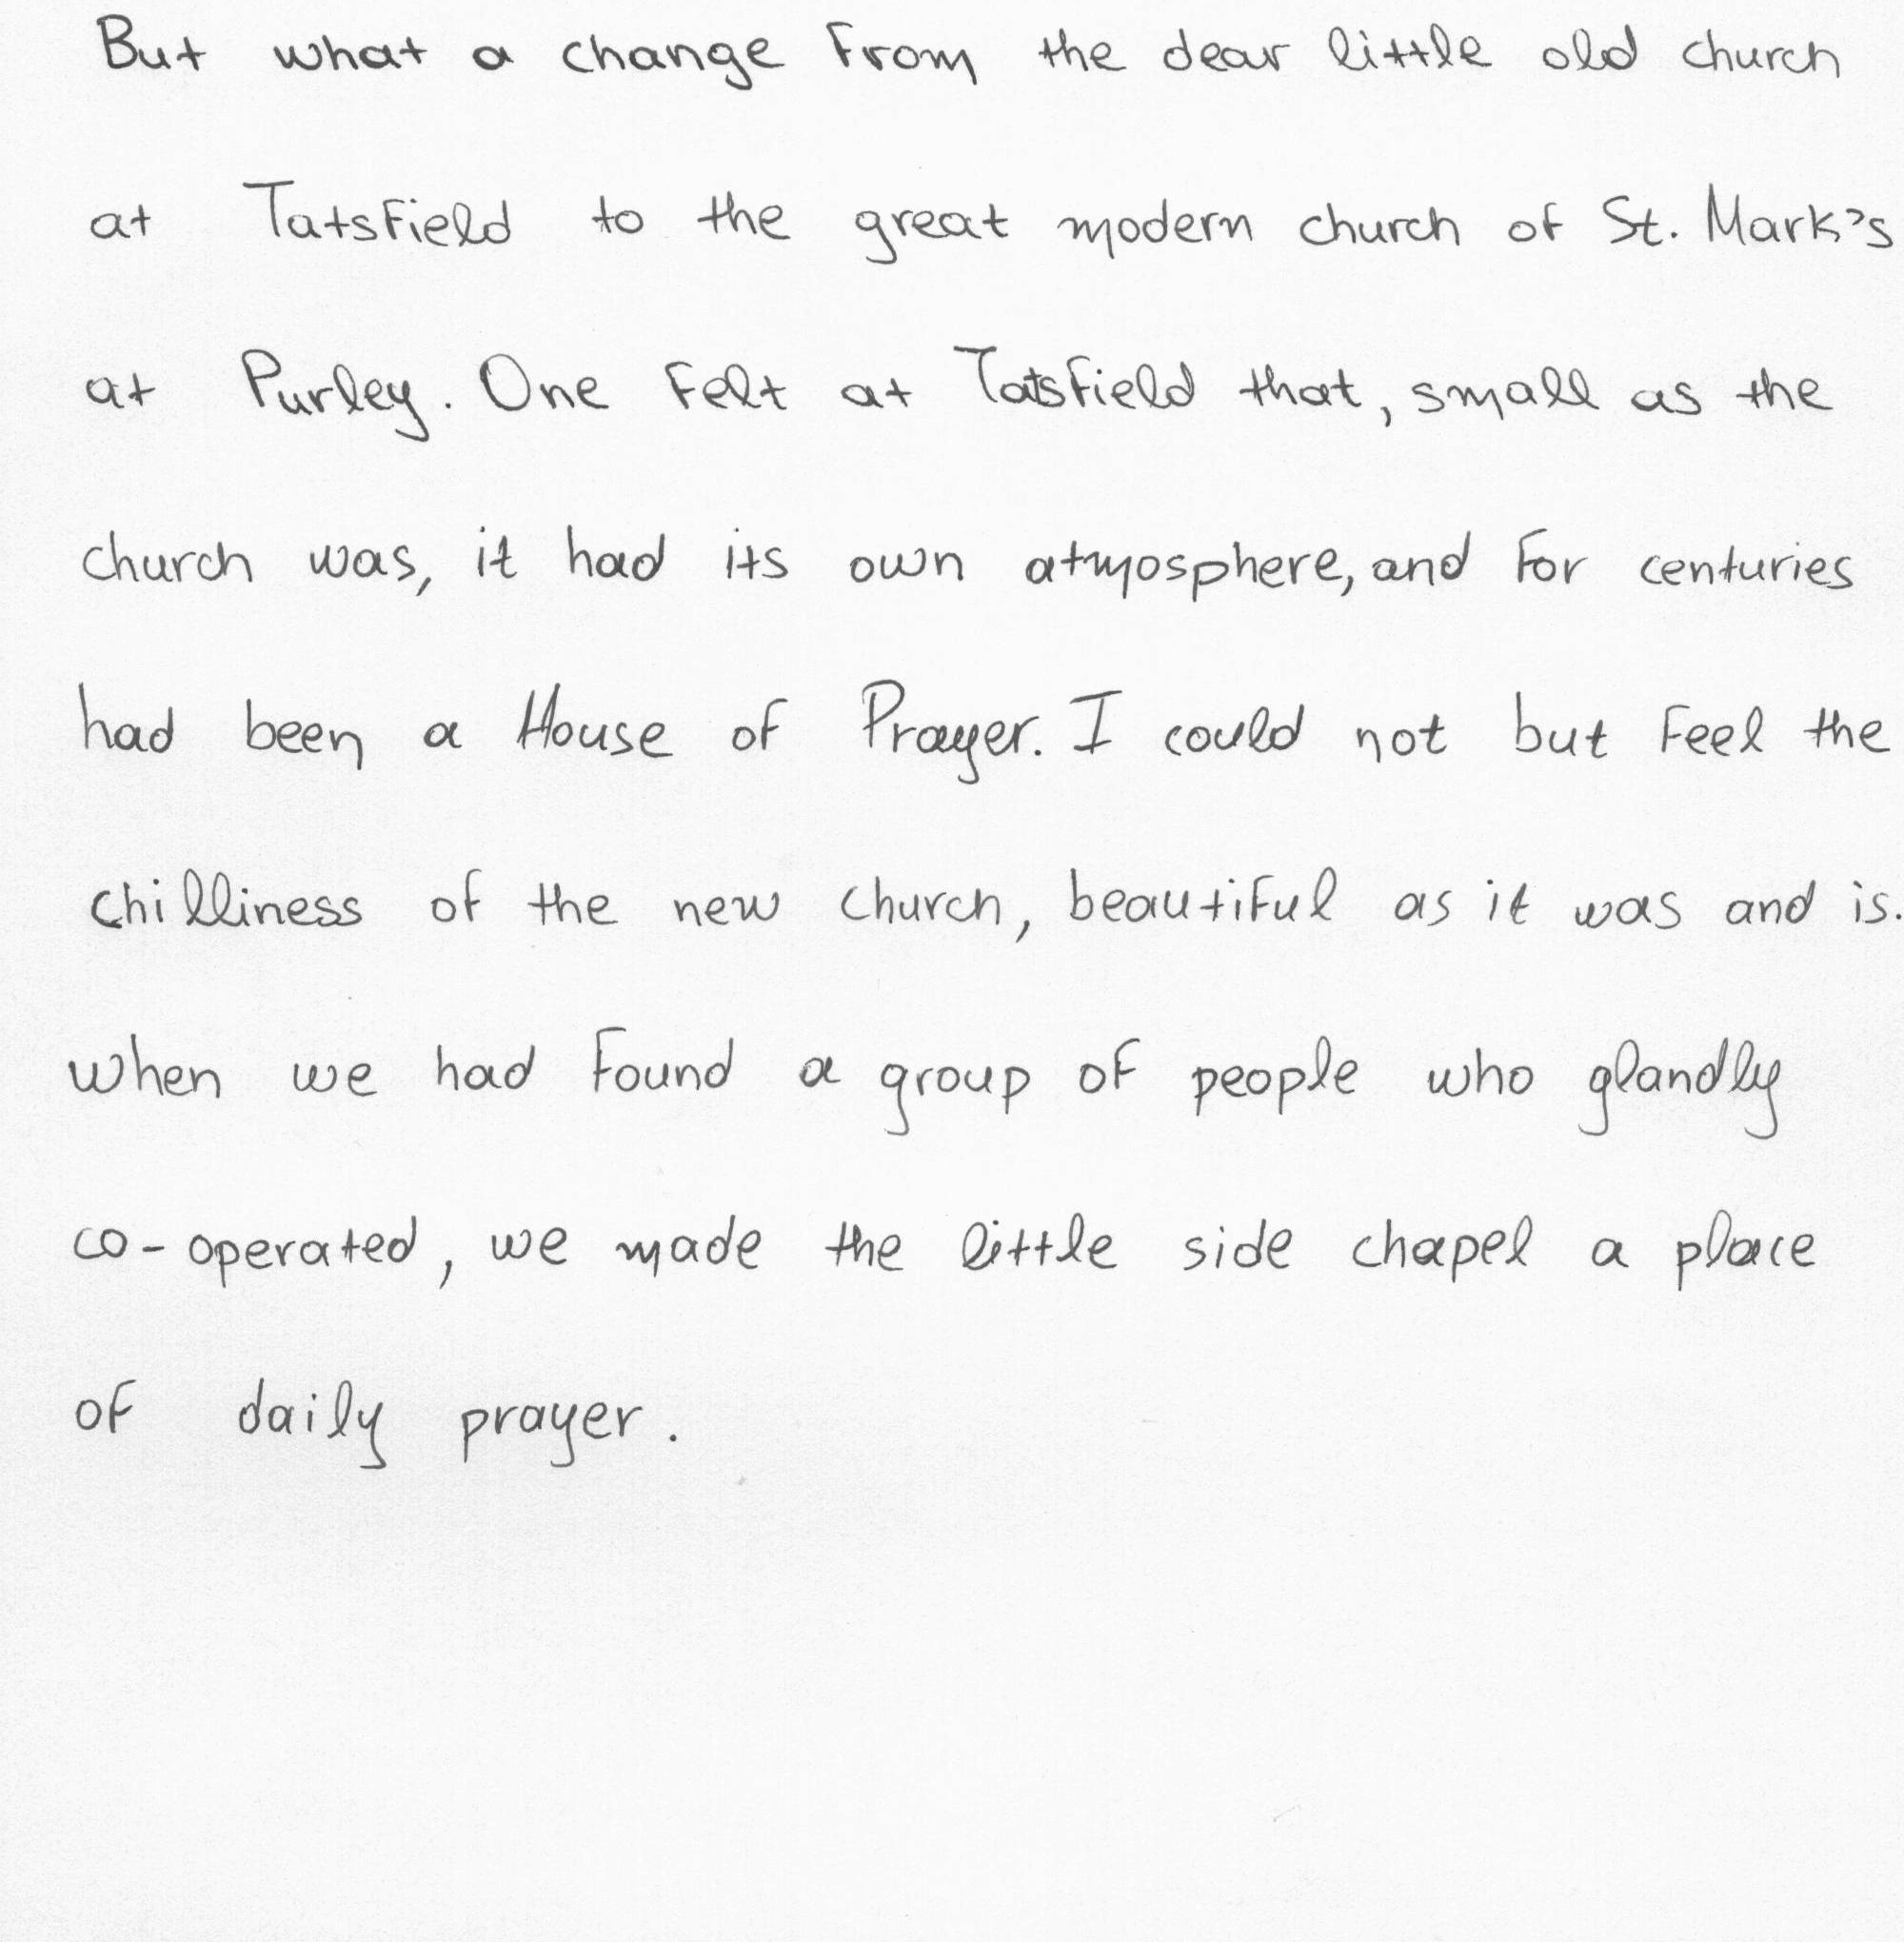 But what a change from the dear little old church
at Tatsfield to the great modern church of St. Mark's
at Purley. One felt at Tatsfield that, small as the
church was, it had its own atmosphere, and for centuries
had been a House of Prayer. I could not but feel the
chilliness of the new church, beautiful as it was and is.
when we had found a group of people who glandly
co-operated, we made the little side chapel a place
of daily prayer.